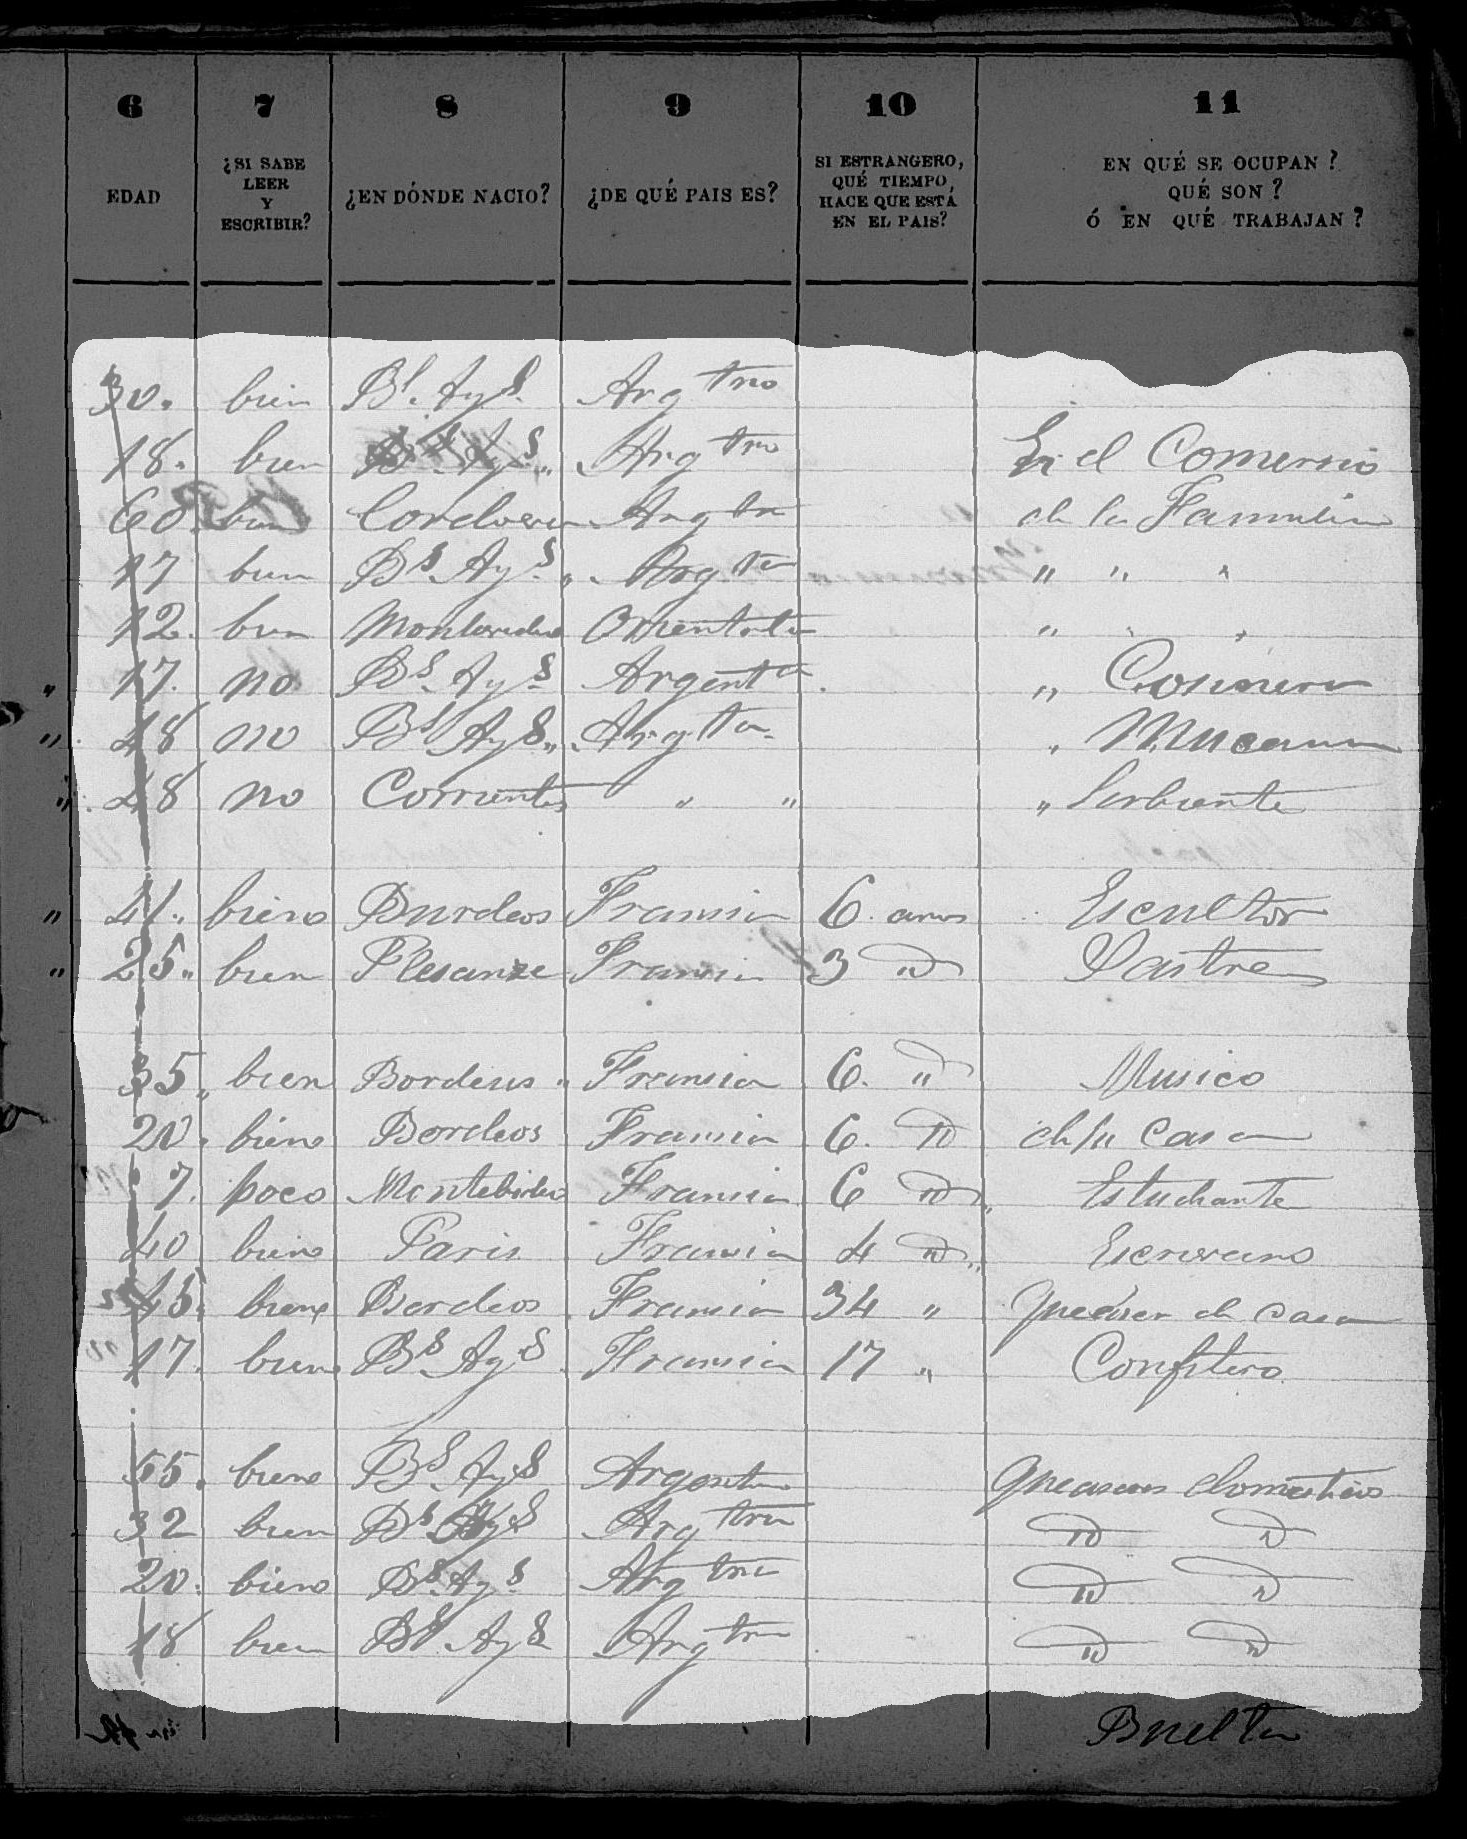 6 7 8 9 10 11
EDAD ¿SI SABE LEER Y ESCRIBIR? ¿EN DÓNDE NACIO? ¿DE QUÉ PAIS ES? SI ESTRANGERO, QUÉ TIEMPO HACE QUE ESTÁ EN EL PAIS? EN QUÉ SE OCUPAN? QUÉ SON? Ó EN QUÉ TRABAJAN?
30. bien Bs. Ays. Argtno
18. bien Bs Ays „ Argtno En el Comersio
60 bien Cordovesa Argtn de la Familia
17 bien Bs Ays „ Argtn „ „ „
12. bien Montevideo Orientala „ „ „
„ 17. no Bs. Ays Argenta „ Cosinera
„ 48 no Bs Ays „ Argta. „ Mucama
„ 48 no Corrientes „ „ „ Sirbiente
„ 41 „ biene Burdeos Fransia 6. años Escultor
„ 25 „ bien Plesanze Fransia 3 „ Sastre
35 „ bien Bordeus „ Fransia 6. „ Musico
20. biene Bordeos Fransia 6. „ de su Casa
7. poco Montebideo Fransia 6 „ Estudiante
40 biene Paris Fransia 4 „ Escrivano
45. biene Bordeos Fransia 34 „ Queáser de casa
17. biene Bs Ays Fransia 17 „ Confitero
55. biene Bs Ays Argentn Queaseres domesticos
32 bien Bs Ays Argtna „ „
20. biene Bs. Ays Argtna „ „
18 bien Bs Ays Argtna „ „
Buelta